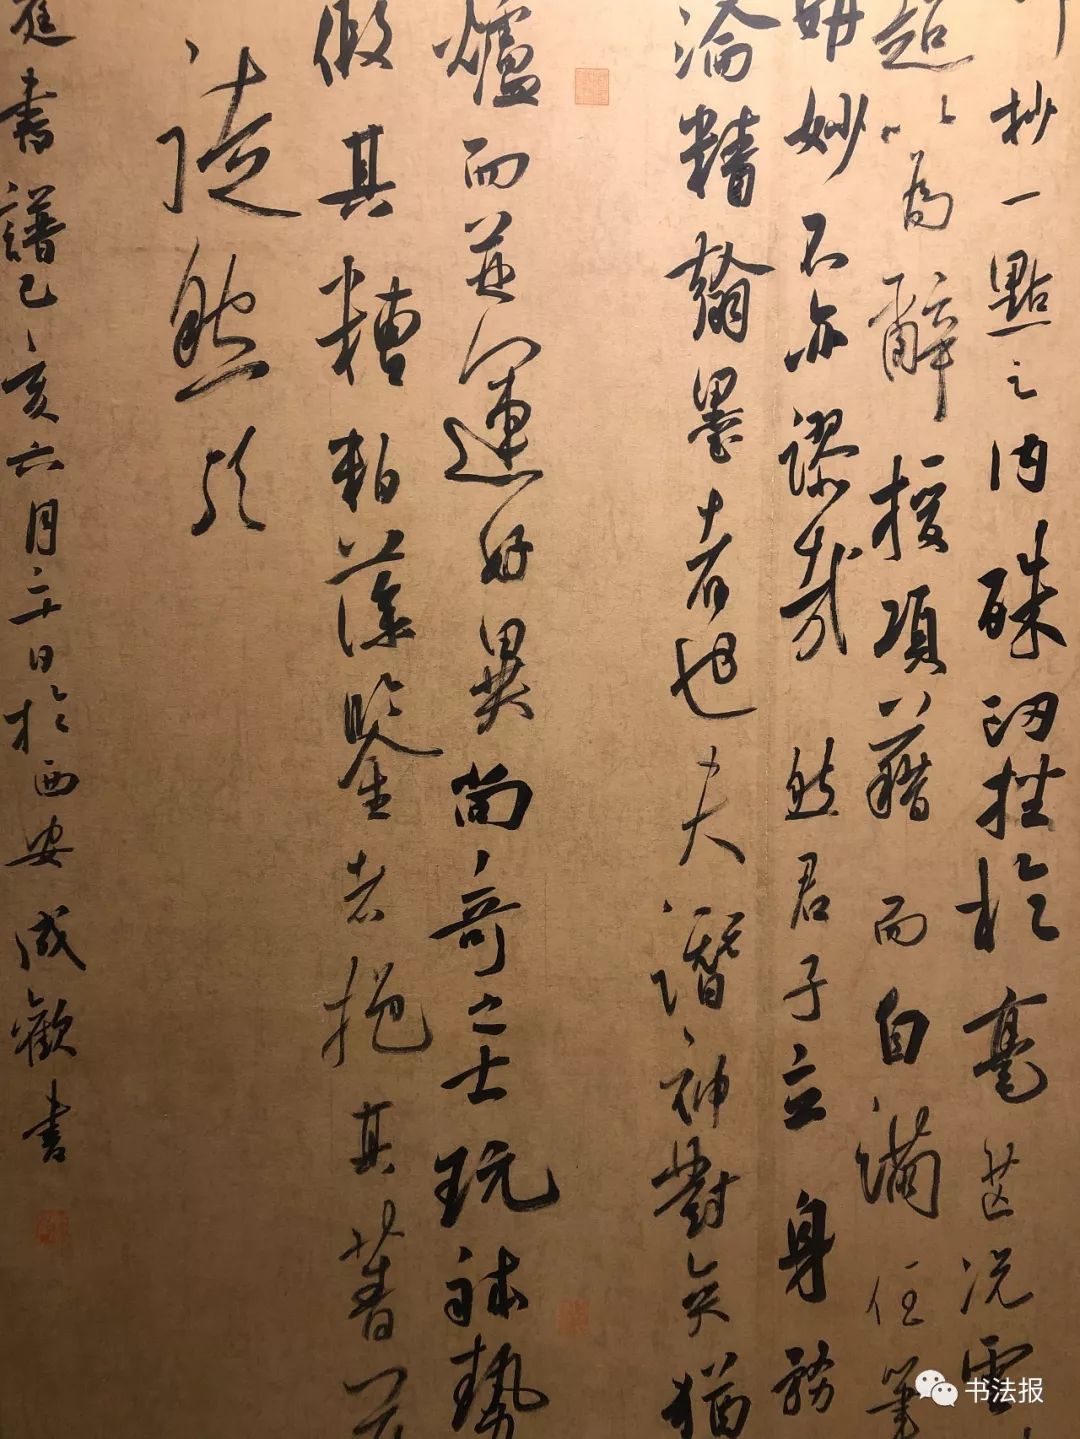 抄一點之内殊衂挫於毫芒况云
超以為醉授項藉而自滿任筆
妙不亦謬哉然君子立身務
淪精翰墨者也夫潛神對奕猶
爐而並運好異尚奇之士玩體勢
假其糟粕藻鑒者挹其菁華
徒然歟
書譜己亥六月二十日於西安成歡書
书法报